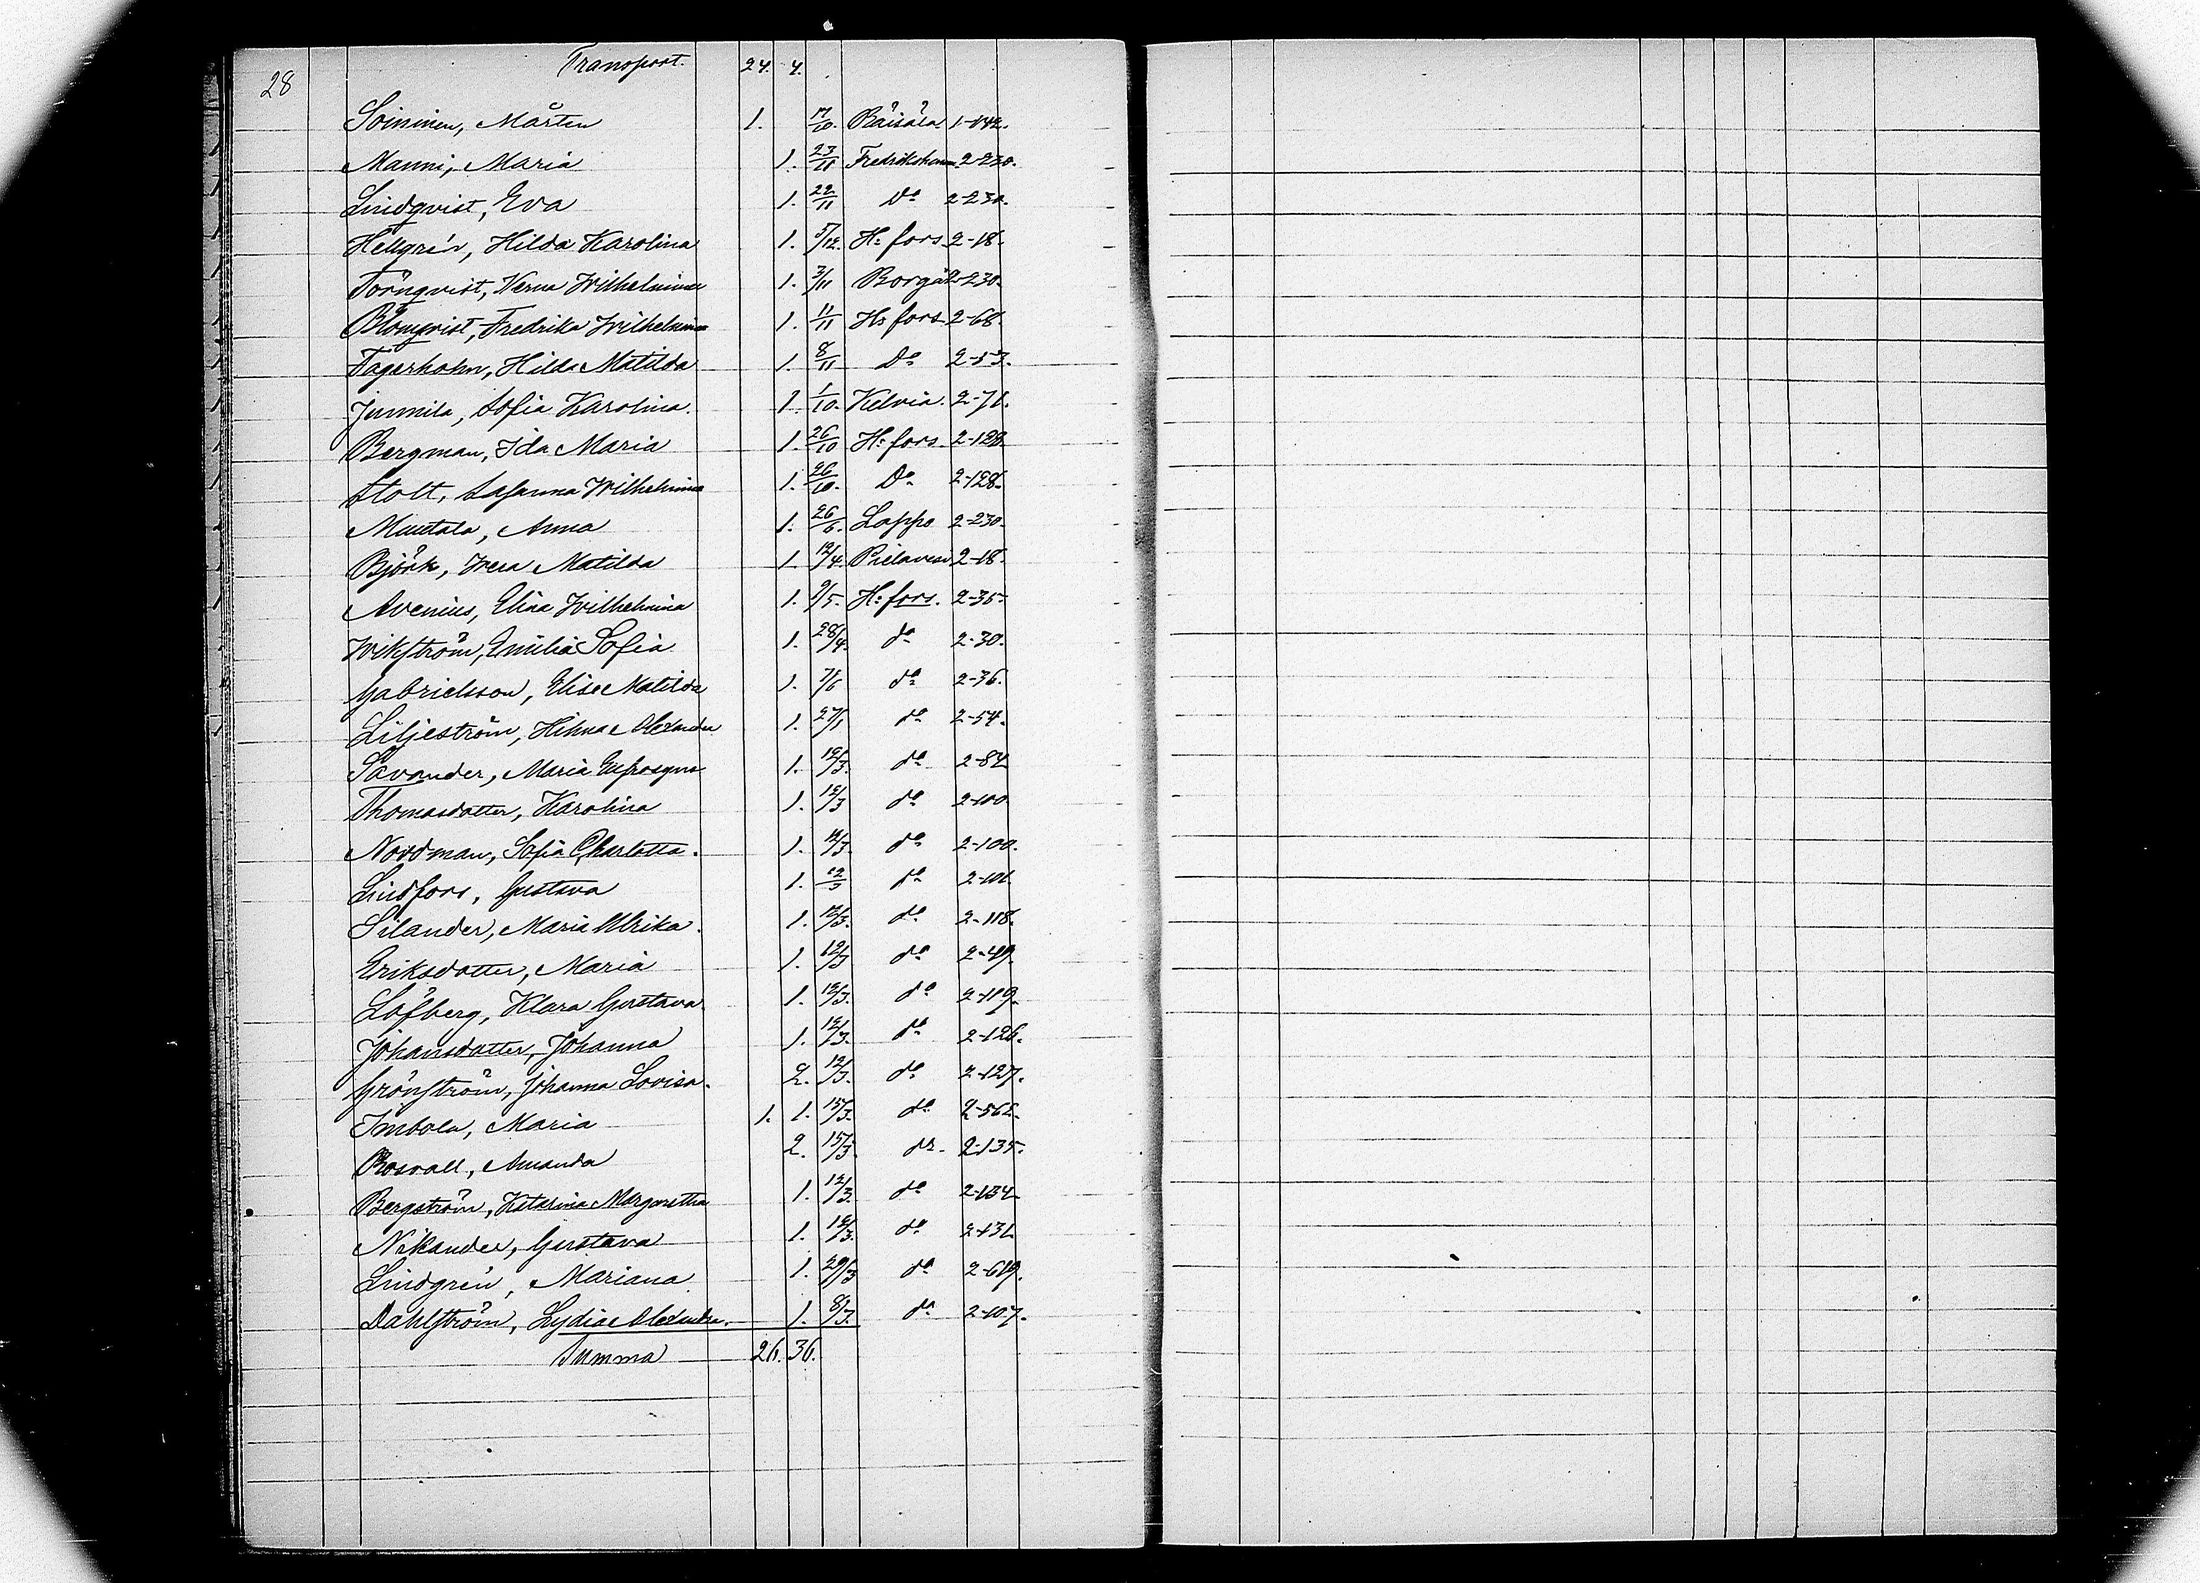 28 Transport. 24. 4.
Soininen, Mårten 1. 17/10. Räisälä 1-142.
Manni, Maria 1. 23/11 Fredrikshamn 2-230.
Lindqvist, Eva 1. 22/11 do 2-230.
Hellgrén, Hilda Karolina 1. 5/12. H:fors 2-18.
Törnqvist, Verna Wilhelmina 1. 3/11 Borgå 2-230.
Blomqvist, Fredrika Wilhelmina 1. 11/11 H:fors 2-68.
Fagerholm, Hilda Matilda 1. 8/11 Do 2-53.
Junnila, Sofia Karolina. 1. 1/10. Kelvia. 2-71.
Bergman, Ida Maria 1. 26/10 H:fors 2-128.
Stolt, Susanna Wilhelmina 1. 26/10. Do 2-128.
Anna 1. 26/6. Lappo 2-230.
Björk, Wera Matilda 1. 12/4. Pielavesi 2-18.
Avenius, Elina Wilhelmina 1. 9/5. H:fors. 2-35.
Wikström, Emilia Sofia 1. 28/4. do 2-30.
Gabrielsson, Elise Matilda 1. 7/6 do 2-36.
Liljeström, Hilma Alexandra 1. 27/1 do 2-54.
Savander, Maria Eufrosyne 1. 12/3. do 2-84
Thomasdotter, Karolina 1. 12/3 do 2-100.
Nordman, Sofia Charlotta. 1. 12/3. do 2-100.
Lindfors, Gustava 1. 12/3 do 2-101.
Silander, Maria Ulrika. 1. 12/3. do 2-118.
Eriksdotter, Maria 1. 12/3 do 2-49.
Löfberg, Klara Gustava. 1. 12/3. do 2-119.
Johansdotter, Johanna 1. 12/3. do 2-126.
Grönström, Johanna Lovisa. 2. 12/3. do 2-127.
Imbola, Maria 1. 1. 15/3. do 2-562.
Rosvall, Amanda 2. 15/3. do 2-135.
Bergström, Katarina Margaretha 1. 12/3. do 2-134
Nikander, Gustava 1. 12/3. do 2-131
Lindgrén, Mariana 1. 29/3 do 2-619.
Dahlström, Lydia Alexandra. 1. 8/3. do 2-107.
Summa 26. 36.